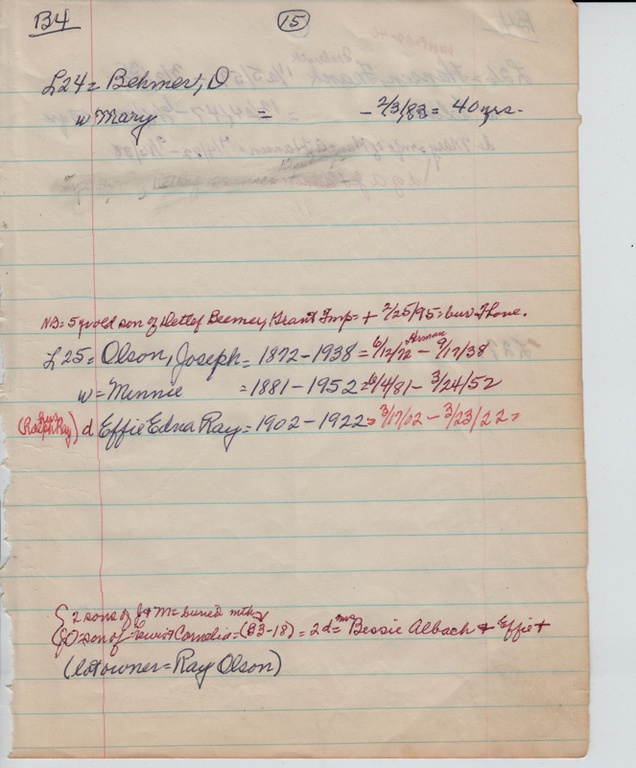 B4
15
L24 = Behmer, D
w Mary = - 2/3/83 = 40 yrs.
NB = 5 yr old son of Detlef Beemer, Grant Twp = + 2/25/95 = bur Ione.
L25 = Olson, Joseph = 1872 - 1938 = 6/12/72 - 9/17/38
w = Minnie = 1881 - 1952 = 6/4/81 - 3/24/52
(Ralph Ray) d Effie Edna Ray = 1902 - 1922 = 3/17/02 - 3/23/22 =
{ 2 sons of J + M = buried
JO = son of Lewis + Cornelia = (B3-18) = 2d = mrs Bessie Albach + Effie +
(lot owner = Ray Olson)